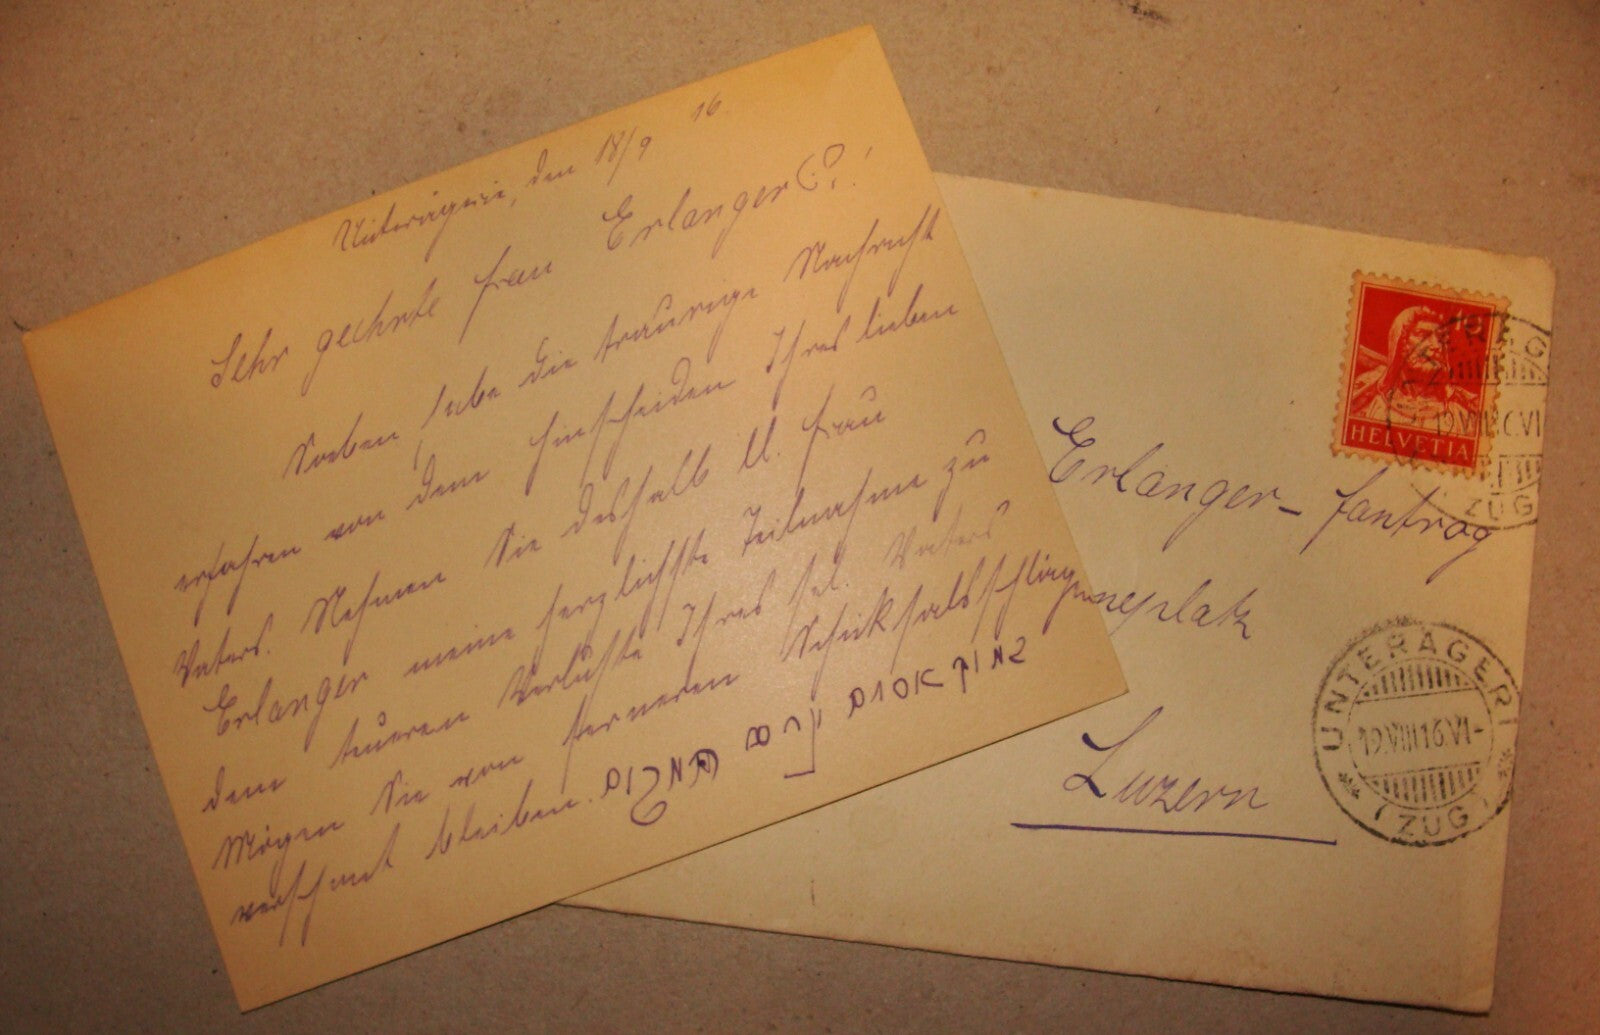 Unterägeri, den 18/9 16
Sehr geehrte Frau Erlanger
Soeben habe die traurige Nachricht
erfahren von dem Hinscheiden Ihres lieben
Vaters. Nehmen Sie deshalb Frau
Erlanger meine herzlichste Teilnahme zu
dem teueren Verluste Ihres sel. Vaters
Mögen Sie von ferneren
verschont bleiben.
HELVETIA
Erlanger-
Luzern
UNTERÄGERI
19.VIII16.VI-
(ZUG)
ZUG